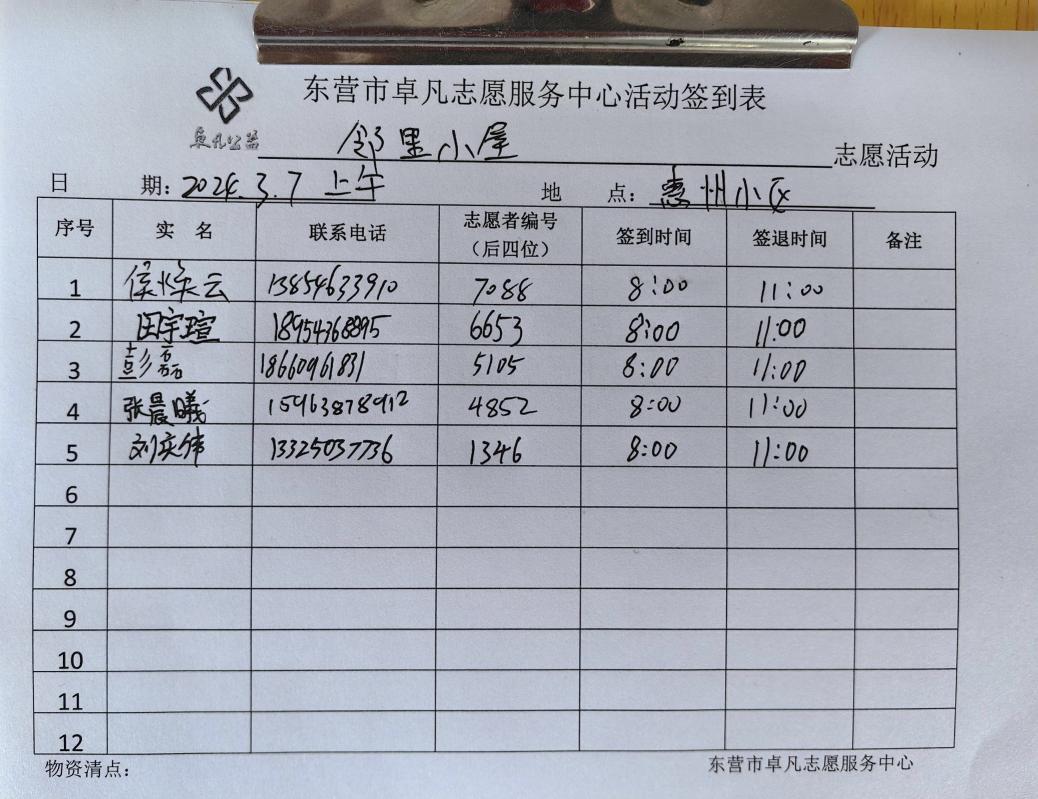 东营市卓凡志愿服务中心活动签到表
卓凡公益
邻里小屋 志愿活动
日 期：2024.3.7 上午 地 点：惠州小区
序号 实 名 联系电话 志愿者编号（后四位） 签到时间 签退时间 备注
1 侯焕云 13854633910 7088 8:00 11:00
2 田宇瑄 18954368895 6653 8:00 11:00
3 彭磊 18660961831 5105 8:00 11:00
4 张晨曦 15963878912 4852 8:00 11:00
5 刘实伟 13325037736 1346 8:00 11:00
6
7
8
9
10
11
12
物资清点： 东营市卓凡志愿服务中心